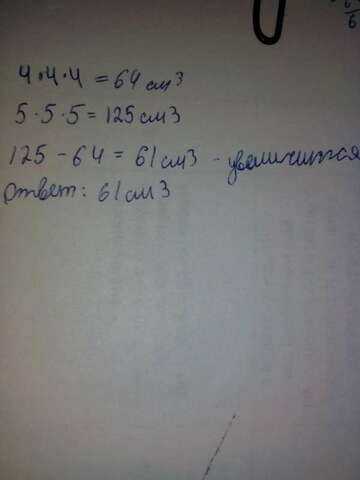 6
6
4·4·4 = 64 см3
5·5·5 = 125 см3
125 - 64 = 61 см3 - увеличится
Ответ: 61 см3